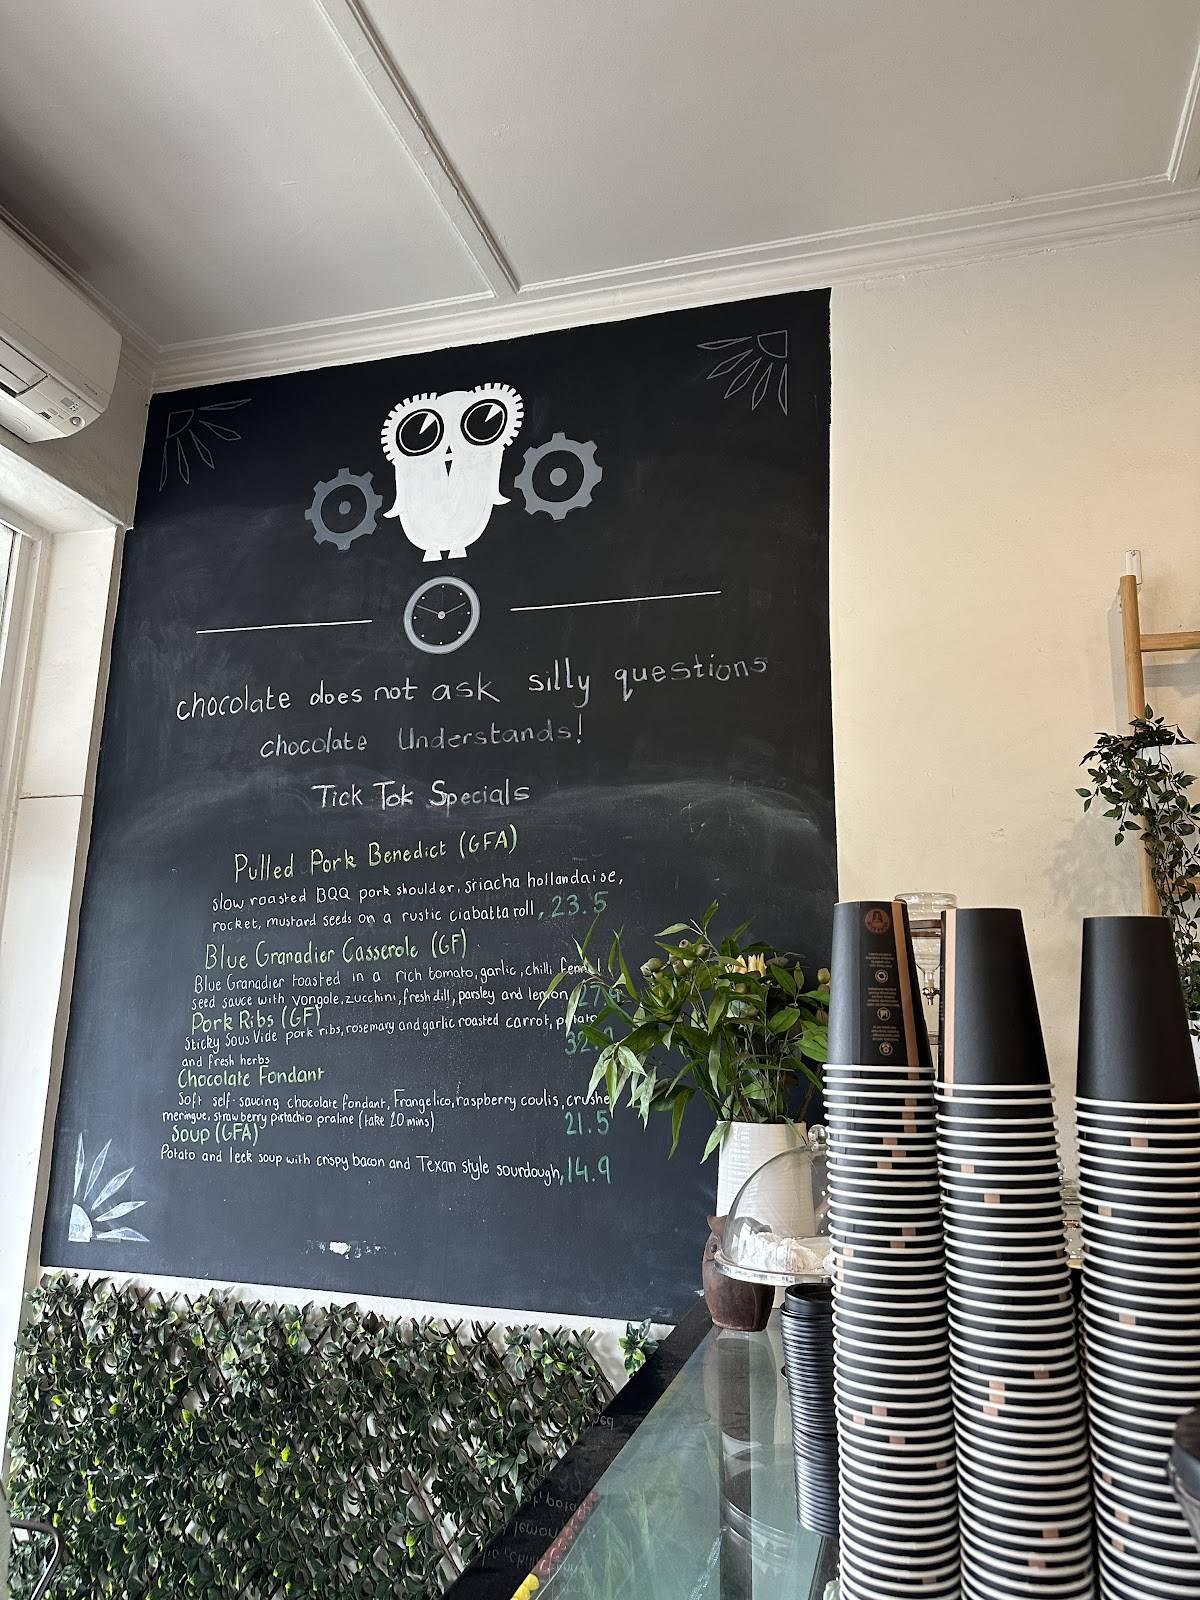 chocolate does not ask silly questions
chocolate Understands!
Tick Tok Specials
Pulled Pork Benedict (GFA)
slow roasted BBQ pork shoulder, sriacha hollandaise,
rocket, mustard seeds on a rustic ciabatta roll, 23.5
Blue Granadier Casserole (GF)
Blue Granadier toasted in a rich tomato, garlic, chilli
seed sauce with vongole, zucchini, fresh dill, parsley and lemon,
Pork Ribs (GF)
Sticky Sous Vide pork ribs, rosemary and garlic roasted carrot,
and fresh herbs
Chocolate Fondant
Soft self-saucing chocolate fondant, Frangelico, raspberry coulis, crushe
meringue, strawberry pistachio praline (take 20 mins) 21.5
Soup (GFA)
Potato and leek soup with crispy bacon and Texan style sourdough, 14.9